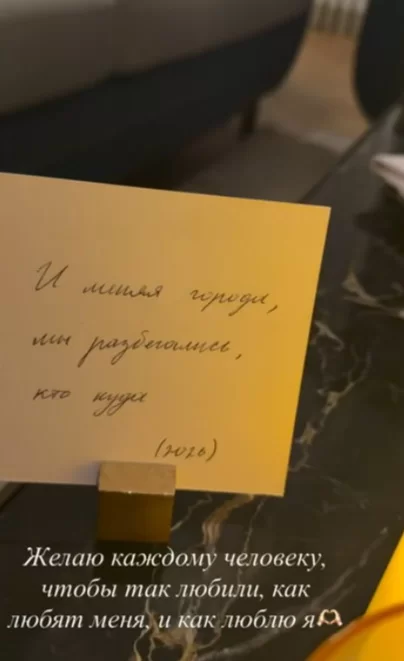 И меняя города,
мы разбегались,
кто куда
Желаю каждому человеку,
чтобы так любили, как
любят меня, и как люблю я🫶🏻